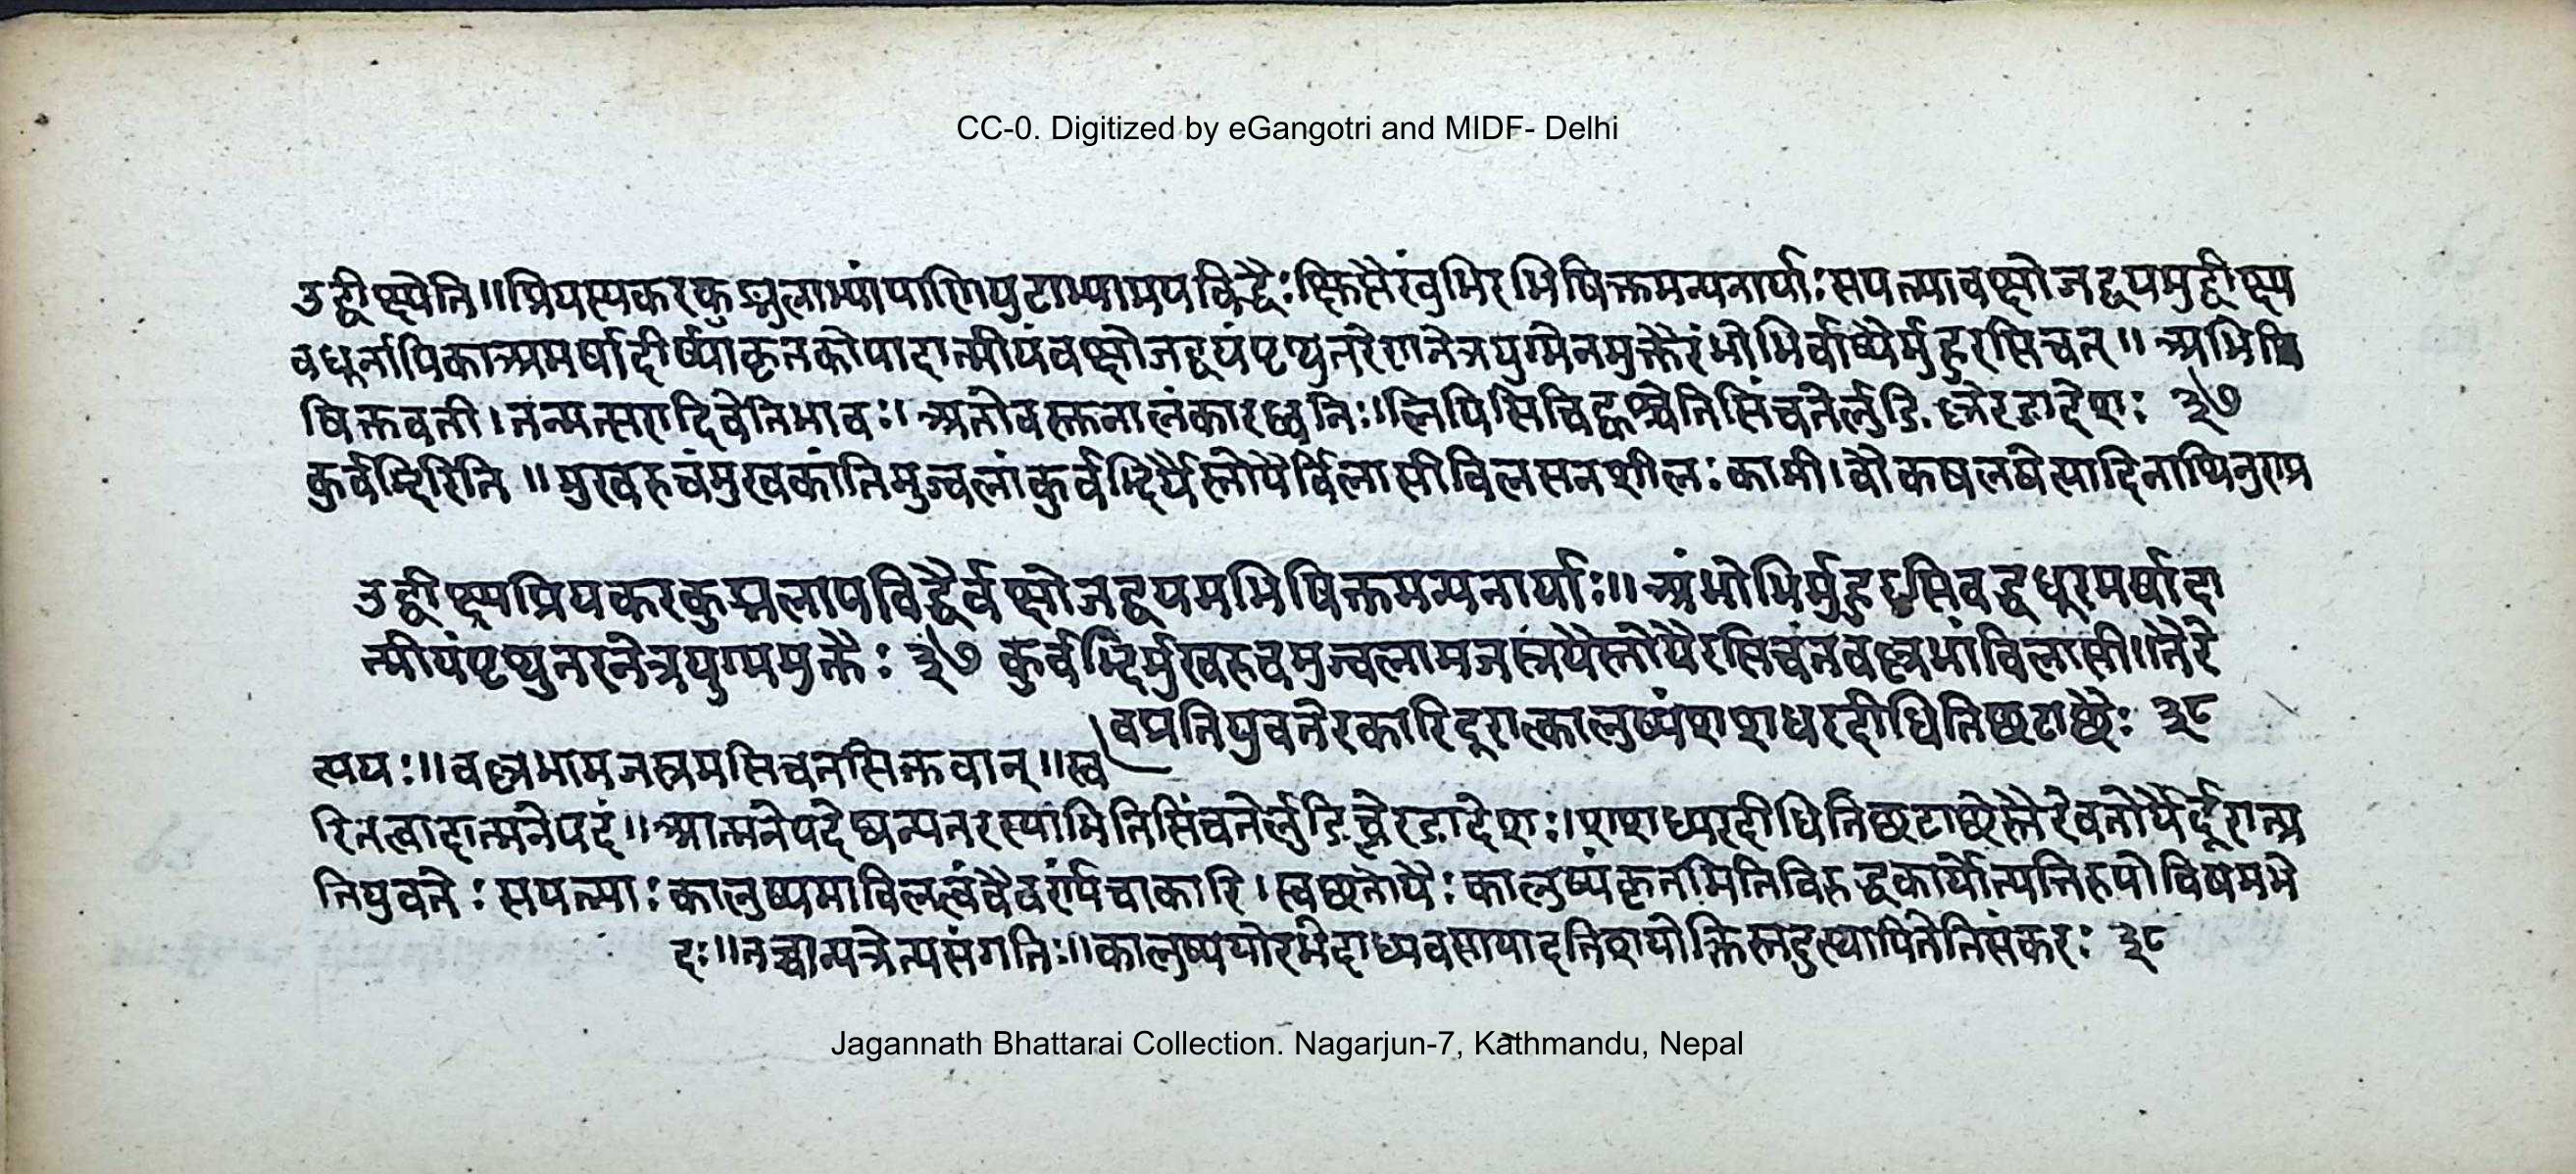 CC-0. Digitized by eGangotri and MIDF- Delhi
उद्वीक्ष्येति॥प्रियस्यकरकुड्मलाभ्यांपाणिपुटाभ्यामपविद्धैःक्षिप्तैरंबुभिरभिषिक्तमन्यनार्याःसपत्न्यावक्षोजद्वयमुद्वीक्ष्य
वधूर्नायिकाअमर्षादीर्ष्याकृतकोपादात्मीयंवक्षोजद्वयंपृथुतरेणनेत्रयुग्मेनमुक्तैरंभोभिर्वाष्पैर्मुहुरसिचत्॥अभि
षिक्तवती।तन्मत्सरादिवेतिभावः॥अतोवस्तुनालंकारध्वनिः॥लिपिसिचिह्वश्चेतिसिंचतेर्लुङि.च्लेरङादेशः ३७
कुर्वद्भिरिति॥मुखरुचंमुखकांतिमुज्वलांकुर्वद्भिर्यैस्तोयैर्विलासीविलसनशीलः कामी।वौकषलषेत्यादिनाघिनुण्प्र
उद्वीक्ष्यप्रियकरकुड्मलापविद्धैर्वक्षोजद्वयमभिषिक्तमन्यनार्याः॥अंभोभिर्मुहुरसिचद्वधूरमर्षादा
त्मीयंपृथुतरनेत्रयुग्ममुक्तैः ३७ कुर्वद्भिर्मुखरुचमुज्वलामजस्रंयैस्तोयैरसिचतवल्लभांविलासी॥तैरे
वप्रतियुवतेरकारिदूरात्कालुष्यंशशधरदीधितिछटाछैः ३८
त्ययः॥वल्लभामजस्रमसिचतसिक्तवान्॥स्व
रितत्वादात्मनेपदं॥आत्मनेपदेष्वन्यतरस्यामितिसिंचतेर्लुङि च्लेरङादेशः।शशधरदीधितिछटाछैस्तैरेवतोयैर्दूरात्प्र
तियुवतेः सपत्न्याः कालुष्यमाविलत्वंवैवर्ण्यंचाकारि।स्वछतोयैः कालुष्यंकृतमितिविरुद्धकार्योत्पत्तिरूपोविषमभे
दः॥तच्चान्यत्रेत्यसंगतिः॥कालुष्ययोरभेदाध्यवसायादतिशयोक्तिस्तदुत्थापितेतिसंकरः ३८
Jagannath Bhattarai Collection. Nagarjun-7, Kathmandu, Nepal